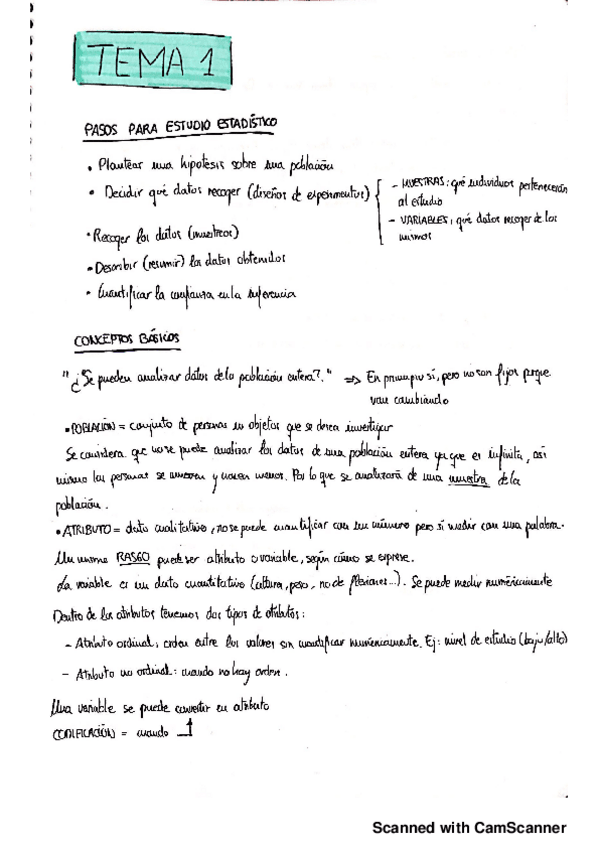 TEMA 1
PASOS PARA ESTUDIO ESTADÍSTICO
• Plantear una hipotesis sobre una población
• Decidir qué datos recoger (diseños de experimentos)
- MUESTRAS: qué individuos pertenecerán
al estudio
- VARIABLES: qué datos recoger de los
mismos
• Recoger los datos (muestreos)
• Describir (resumir) los datos obtenidos
• Cuantificar la confianza en la inferencia
CONCEPTOS BÁSICOS
"¿Se pueden analizar datos de la población entera?." => En principio sí, pero no son fijos porque
van cambiando
• POBLACIÓN = conjunto de personas u objetos que se desea investigar
Se considera que no se puede analizar los datos de una población entera ya que es infinita, así
mismo las personas se mueren y nacen menos. Por lo que se analizará de una muestra de la
población.
• ATRIBUTO = dato cualitativo, no se puede cuantificar con un número pero sí medir con una palabra.
Un mismo RASGO puede ser atributo o variable, según cómo se exprese.
La variable es un dato cuantitativo (altura, peso, no de flexiones...). Se puede medir numéricamente
Dentro de los atributos tenemos dos tipos de atributos:
- Atributo ordinal: orden entre los valores sin cuantificar numéricamente. Ej: nivel de estudio (bajo/alto)
- Atributo no ordinal: cuando no hay orden.
Una variable se puede convertir en atributo
CODIFICACIÓN = cuando
Scanned with CamScanner